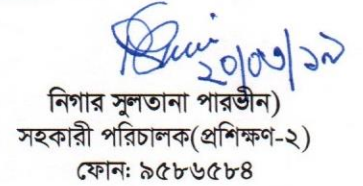 ২০/০৩/১৯
নিগার সুলতানা পারভীন)
সহকারী পরিচালক(প্রশিক্ষণ-২)
ফোন: ৯৫৮৬৫৮৪